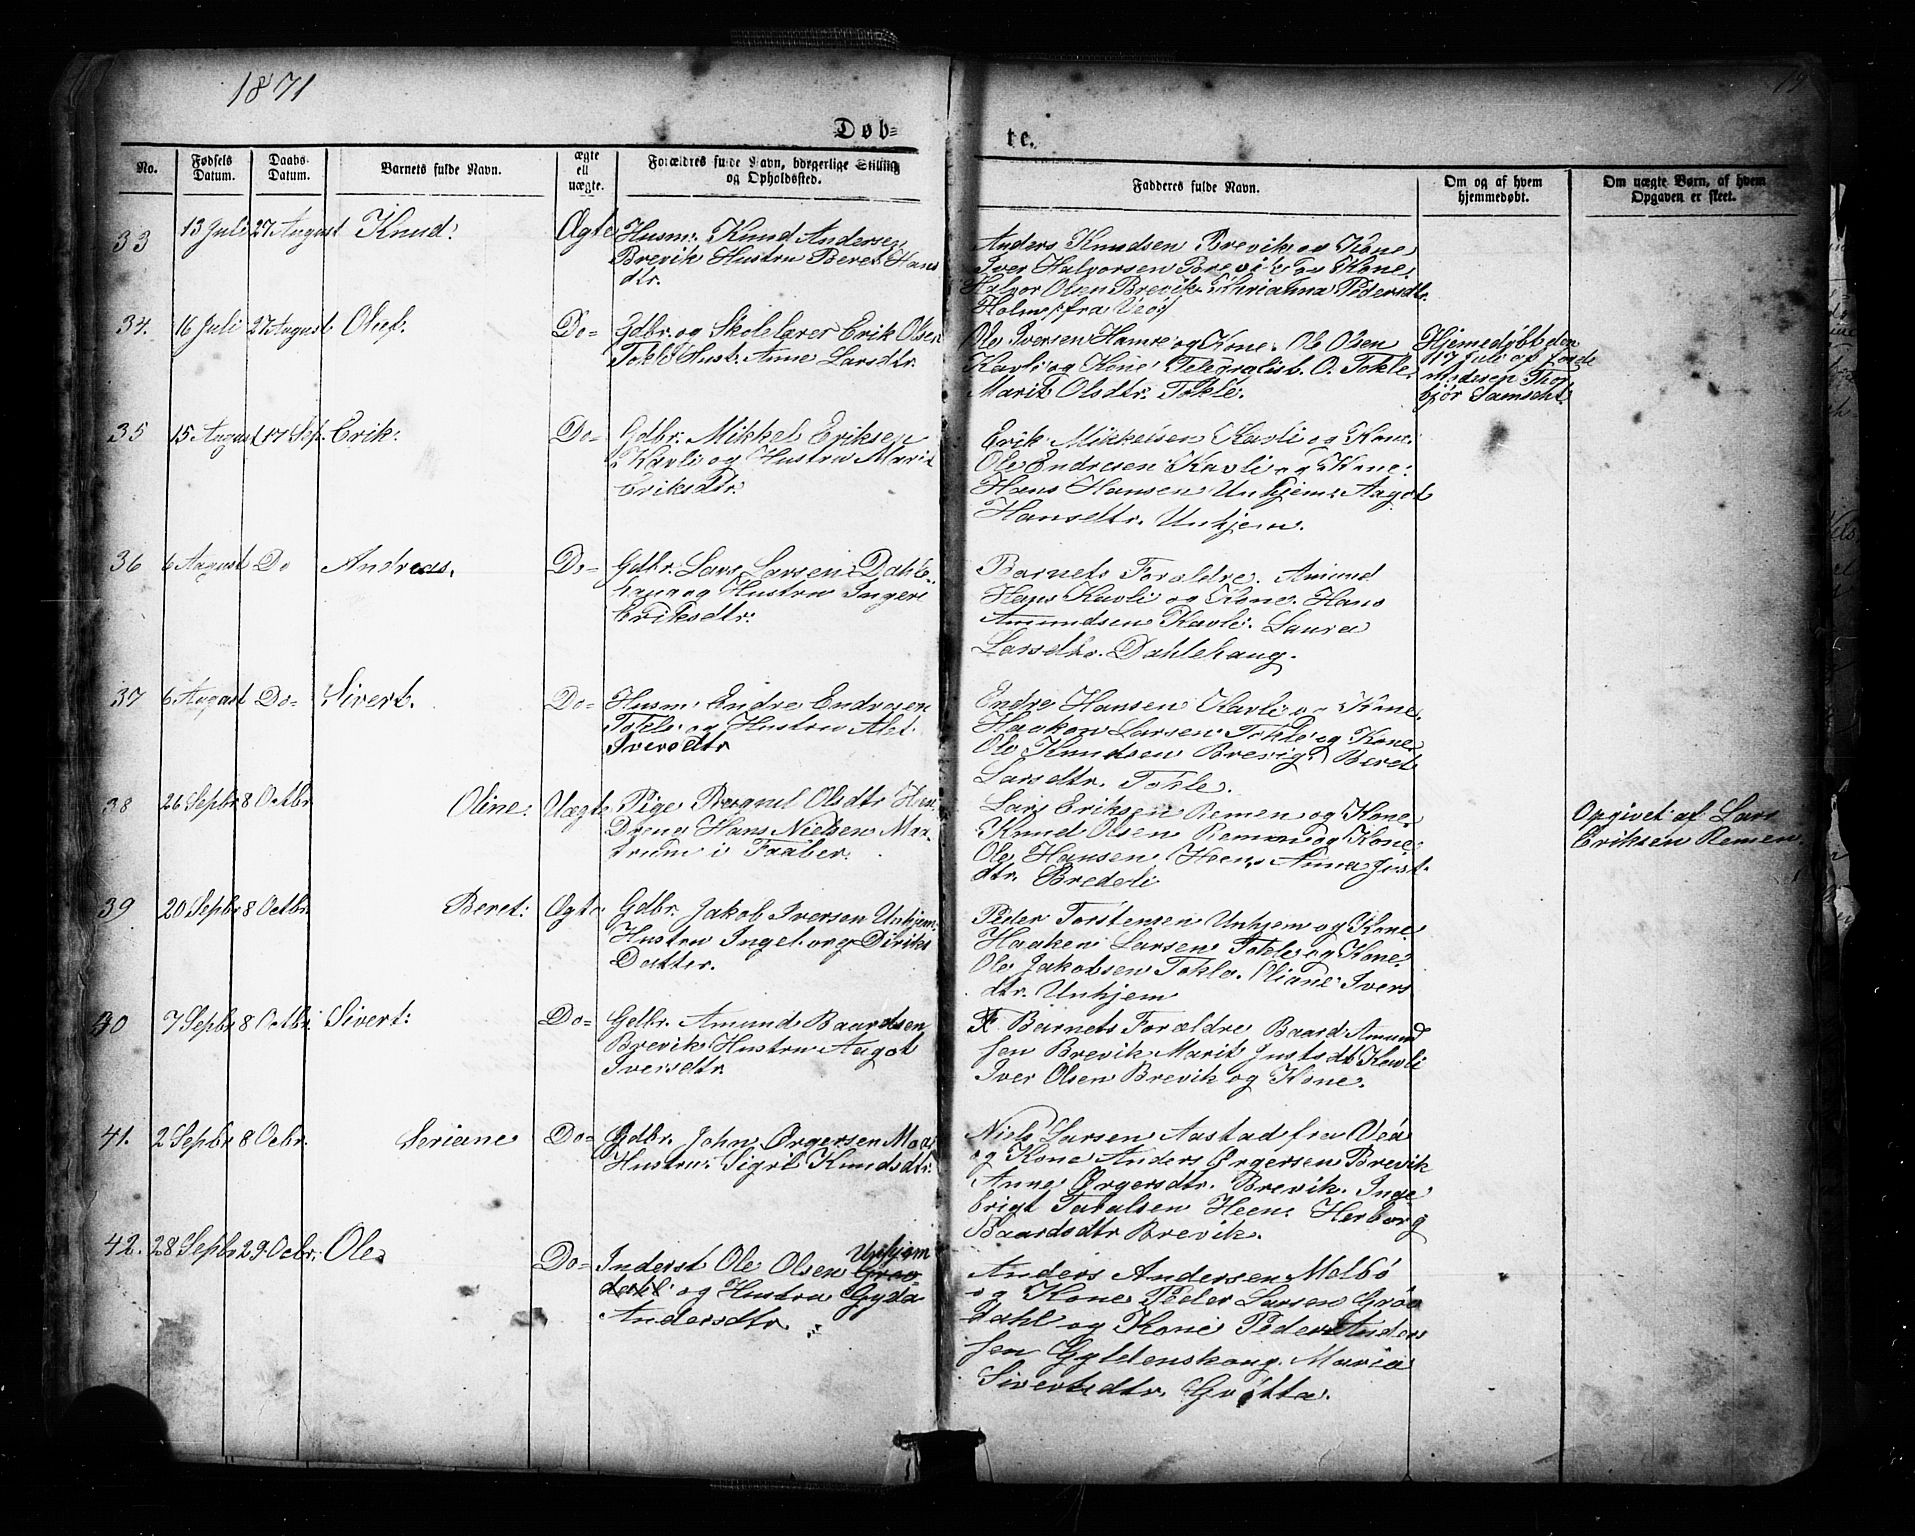 1871
Døb=
te.
No.
Fødsels Datum.
Daabs Datum.
Barnets fulde Navn.
ægte ell uægte.
Forældres fulde Navn, borgerlige Stilling og Opholdssted.
Fadderes fulde Navn.
Om og af hvem hjemmedøbt.
Om uægte Børn, af hvem Opgaven er skeet.
33 13 Juli 27 August Knud: Ægte
Husm: Knud Andersen
Brevik Hustru Beret Hans
dtr.
Anders Knudsen Brevik og Kone
Iver Halvorsen Brevik og Kone.
Halvor Olsen Brevik. Pedersdtr.
Holme fra Veø
34. 16 Juli 27 August Oluf. Do-
Gdbr. og Skolelærer Erik Olsen
Tokle Hust. Anne Larsdtr.
Ole Iversen Hamre og Kone. Ole Olsen
Kavli og Kone Telegrafistb. O. Tokle.
Marit Olsdtr. Tokle.
Hjemedøbt den
17 Juli af Jorde
moderen Thor
bjør
35 15 August 17 Sep. Erik. Do-
Gdbr. Mikkel Eriksen
Kavli og Hustru Marit
Eriksdtr.
Erik Mikkelsen Kavli og Kone.
Ole Endresen Kavli og Kone.
Hans Hansen Unhjem. Aagot
Hansdtr. Unhjem.
36 6 August Do Andreas. Do-
Gdbr. Lars Larsen Dahle-
haug og Hustru Ingeri
Eriksdtr.
Barnets Forældre. Amund
Hans Kavli og Kone. Hans
Amundsen Kavli. Laura
Larsdtr. Dahlehaug.
37 6 August Do- Sivert. Do-
Husm: Endre Endresen
Tokle og Hustru Alet
Iversdtr
Endre Hansen Kavli og Kone.
Haakon Larsen Tokle og Kone.
Ole Knudsen Brevig. Beret
Larsdtr. Tokle.
38 26 Sepbr 8 Octbr Oline: Uægte
Pige Ragnil Olsdtr.
Dreng Hans Nielsen
i Faaber.
Lars Eriksen Remen og Kone.
Knud Olsen Remen og Kone.
Ole Hansen Heen. Anna Just
dtr. Bredeli
Opgivet af Lars
Eriksen Remen.
39 20 Sepbr 8 Octbr. Beret: Ægte
Gdbr. Jakob Iversen Unhjem.
Hustru Ingeborg Diriks
Datter.
Peder Torstensen Unhjem og Kone
Haaken Larsen Tokle og Kone.
Ole Jakobsen Tokle. Oliane Ivers
dtr. Unhjem
40 7 Sepbr 8 Octbr. Sivert: Do-
Gdbr. Amund Baardsen
Brevik Hustru Aagot
Iversdtr.
F. Barnets Forældre Baard Amund
sen Brevik Marit Justsdt Kavli
Iver Olsen Brevik og Kone.
41. 2 Sepbr 8 Ocbr. Seriane Do-
Gdbr. John Ørgersen Moa
Hustru. Sigrit Knudsdtr.
Niels Larsen Aastad fra Veø
og Kone Anders Ørgersen Brevik
Anne Ørgersdtr. Brevik. Inge
brigt Taralsen Heen. Herborg
Baardsdtr Brevik.
42. 28 Sepbr 29. Ocbr. Ole. Do-
Inderst Ole Olsen Unhjem
og Hustru Gyda
Andersdtr.
Anders Andersen Melbø
og Kone Peder Larsen Grøv
dahl og Kone Peder Ander
sen Gyldenskoug. Maria
Sivertsdtr. Grøtta.